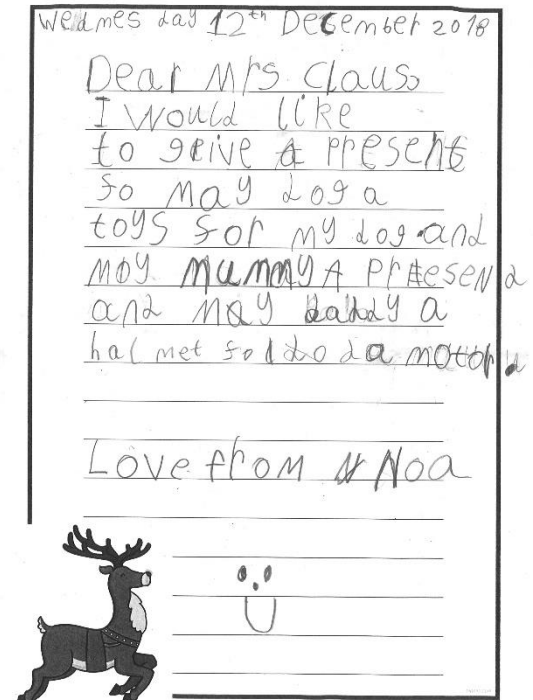 Wednes day 12th December 2018
Dear Mrs. Claus
I would like
to geive a presents
fo May dog a
toys for my dog and
moy mummy A present
and may daddy a
hal met fo do a motor
Love from Noa